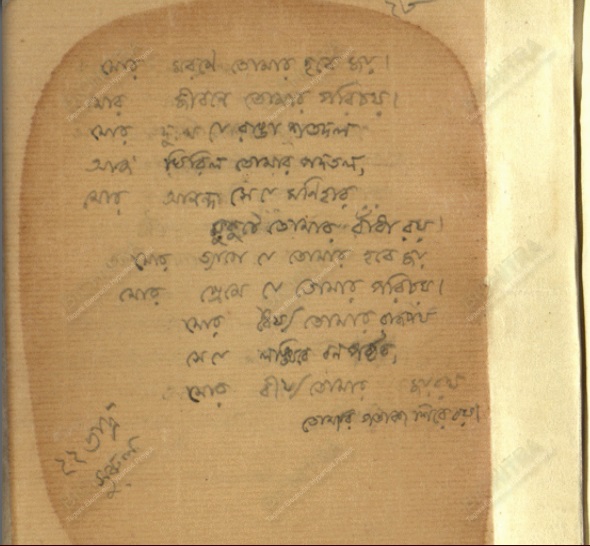 মোর মরণে তোমার হবে জয়।
মোর জীবনে তোমার পরিচয়।
মোর দুঃখ যে রাঙা শতদল
আজ ঘিরিল তোমার পদতল,
মোর আনন্দ সে যে মণিহার
মুকুটে তোমার বাঁধা রয়।
মোর ত্যাগে যে তোমার হবে জয়
মোর প্রেমে যে তোমার পরিচয়।
মোর ধৈর্য্য তোমার রাজপথ
সে যে লঙ্ঘিবে বনপর্ব্বত,
মোর বীর্য্য তোমার জয়রথ
তোমার পতাকা শিরে বয়।
২২ ভাদ্র
সুরুল